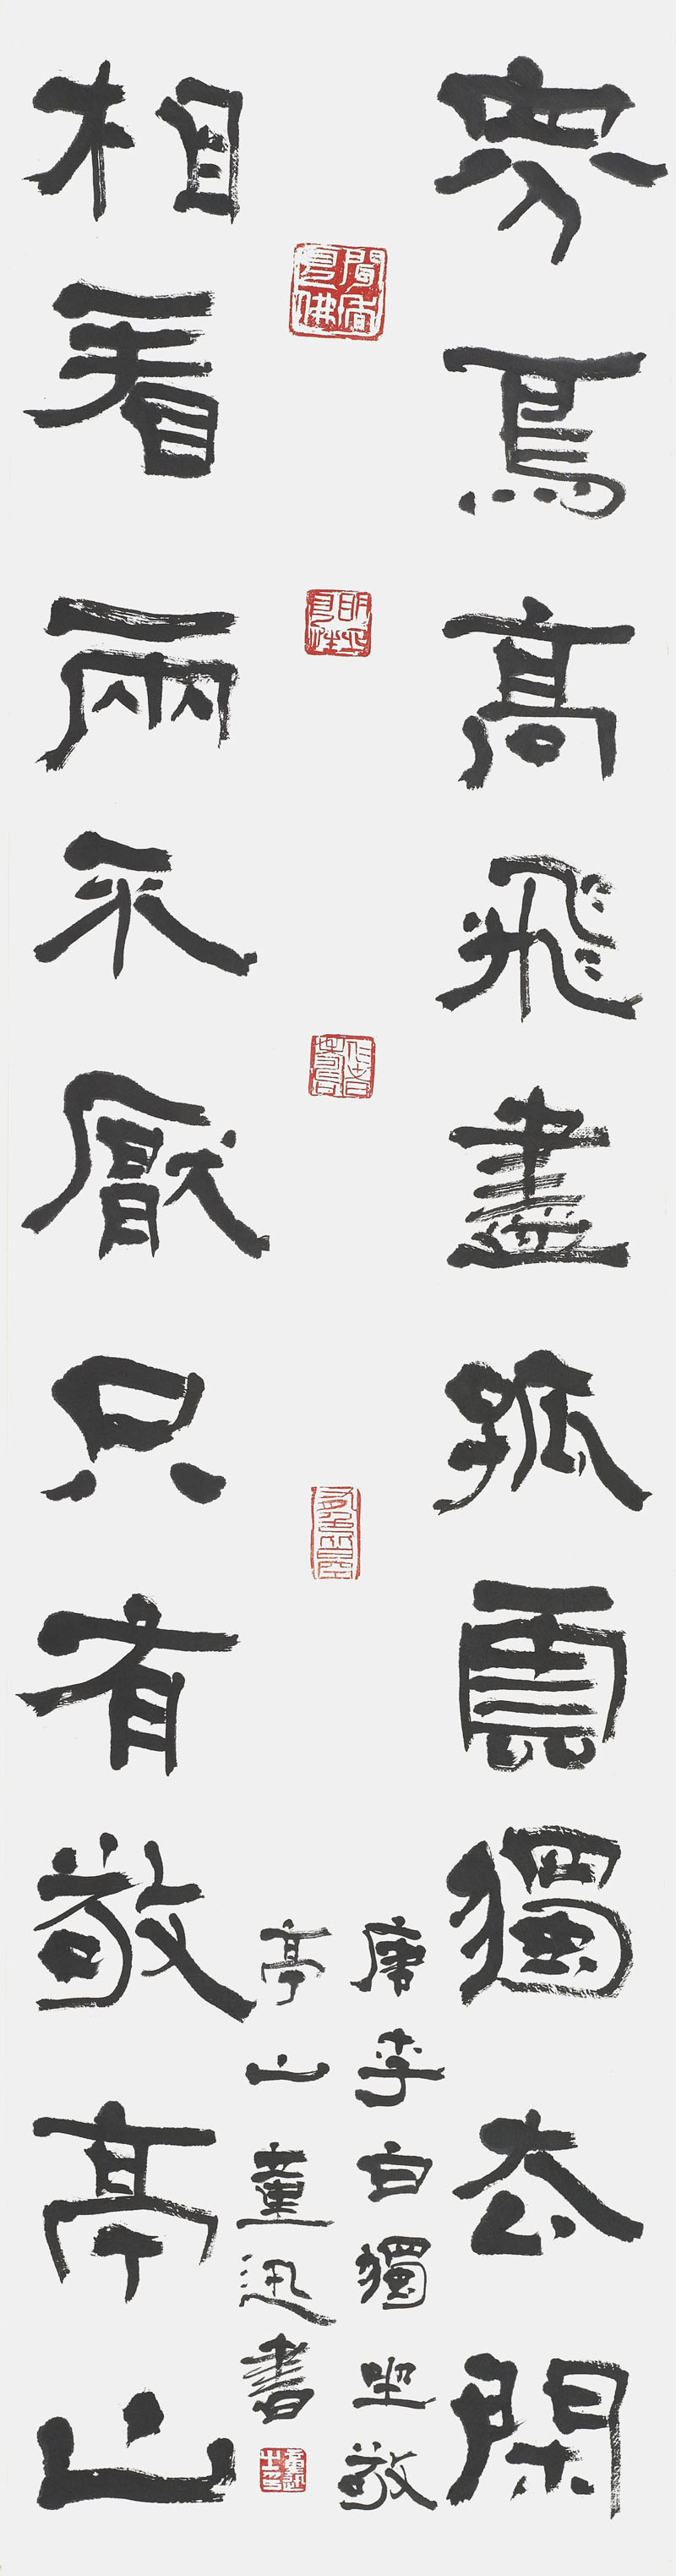 眾鳥高飛盡孤雲獨去閑
相看兩不厭只有敬亭山
唐李白獨坐敬
亭山董迅書
明心見性